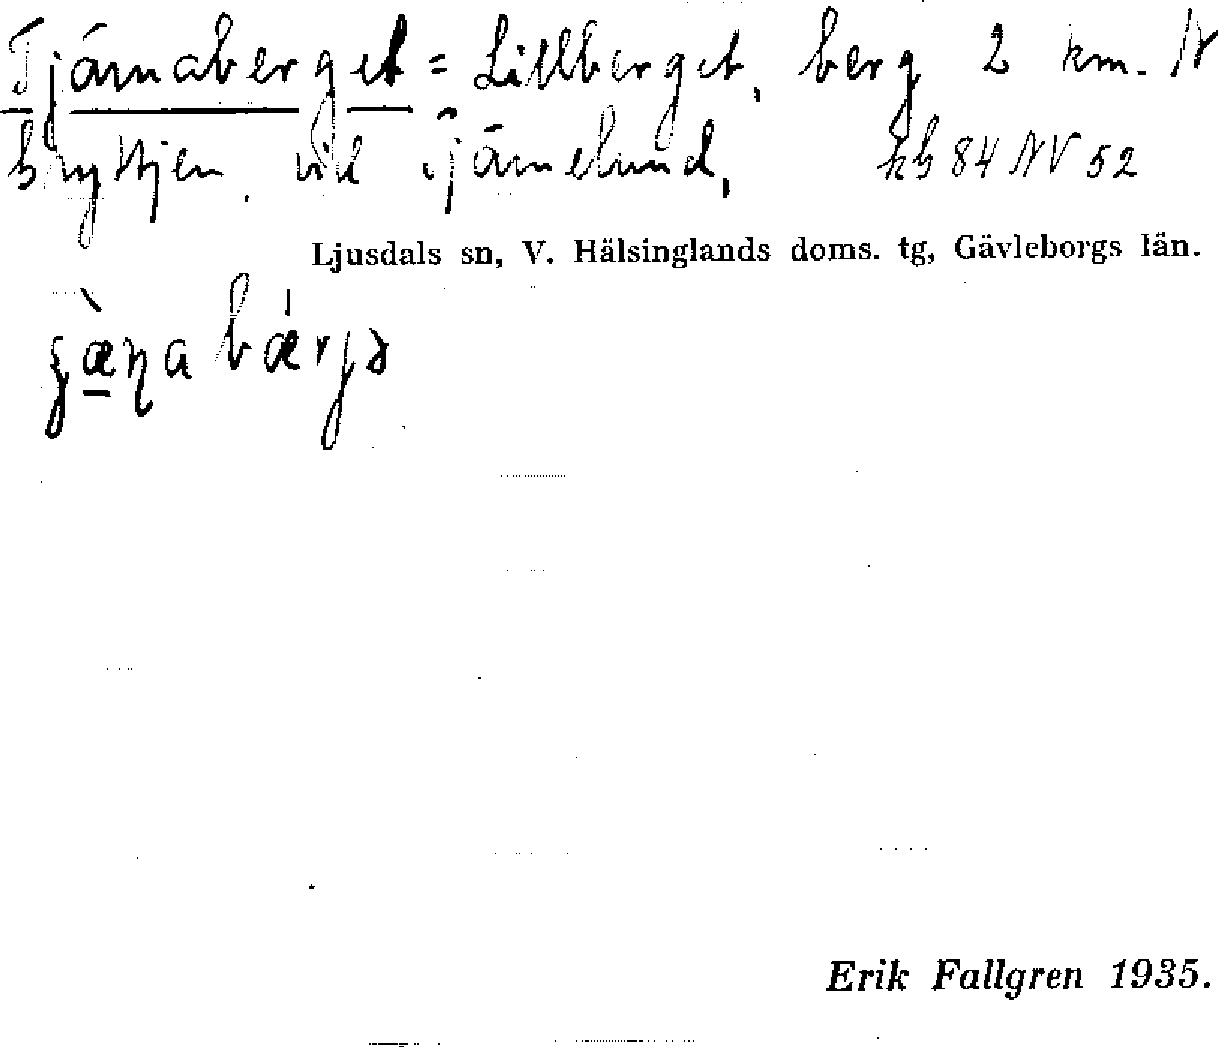 Tjärnaberget = Lillberget, berg 2 km. N
bryttjen vid Tjärnelund, kb 84 NV 52
Ljusdals sn, V. Hälsinglands doms. tg, Gävleborgs län.
Erik Fallgren 1935.